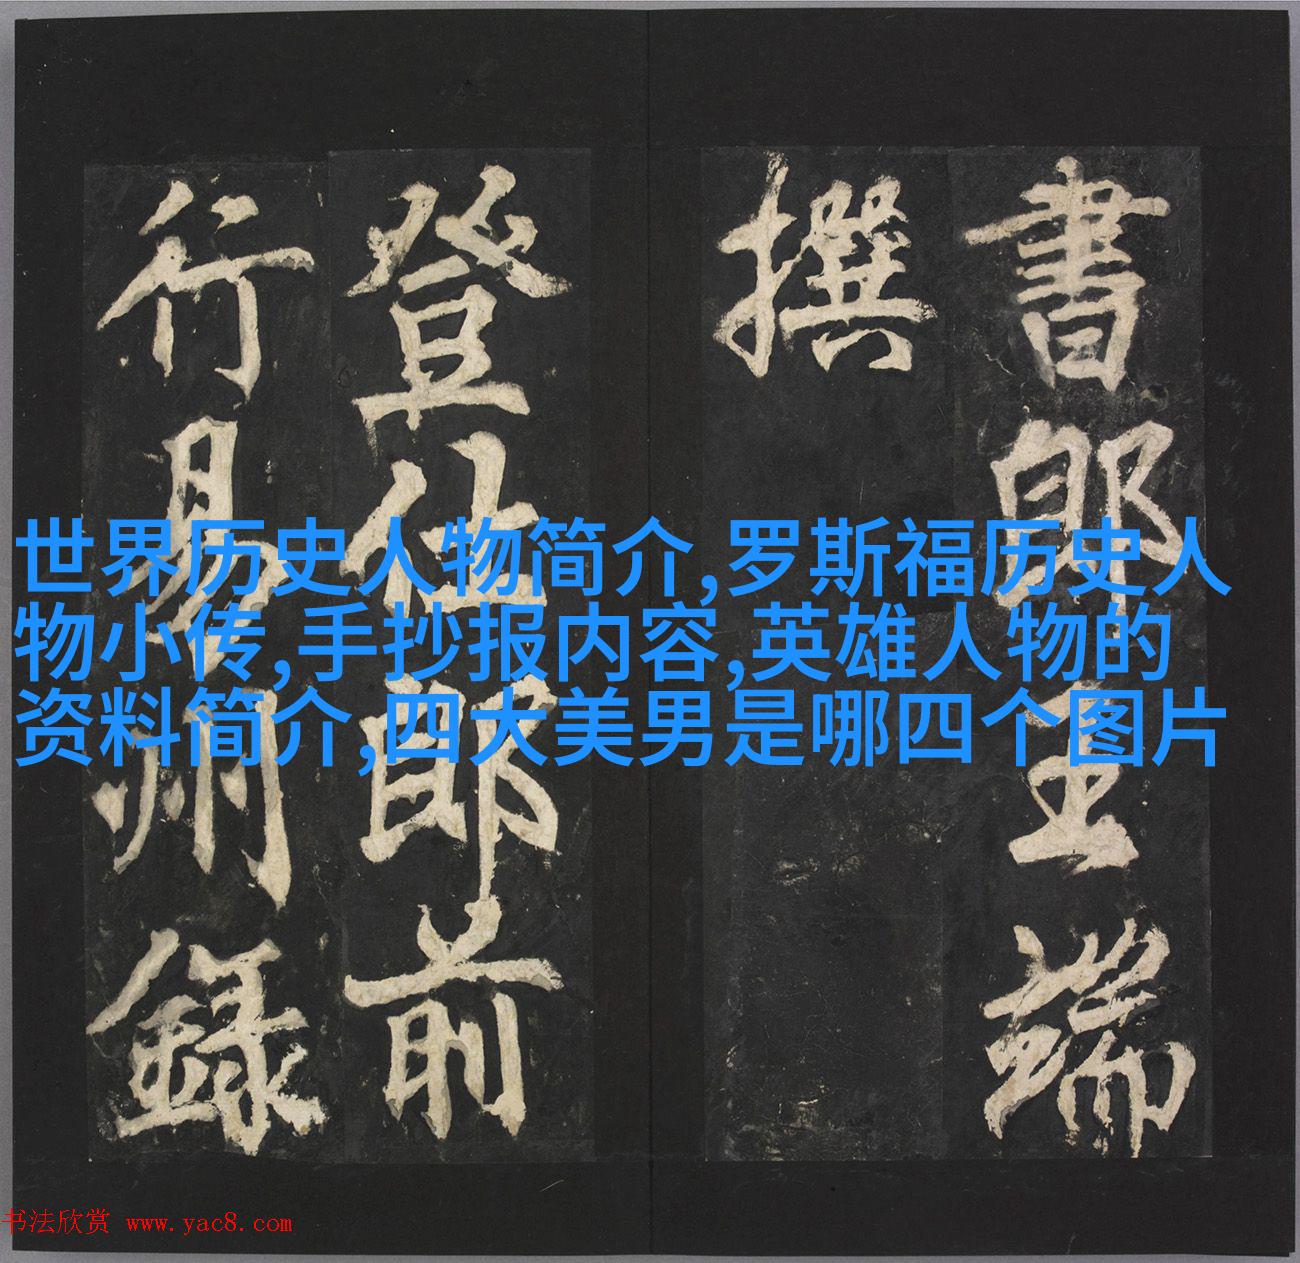 書郎王端
撰
登仕郎前
行易州錄
世界历史人物简介,罗斯福历史人
物小传,手抄报内容,英雄人物的
资料简介,四大美男是哪四个图片
书法欣赏 www.yac8.com